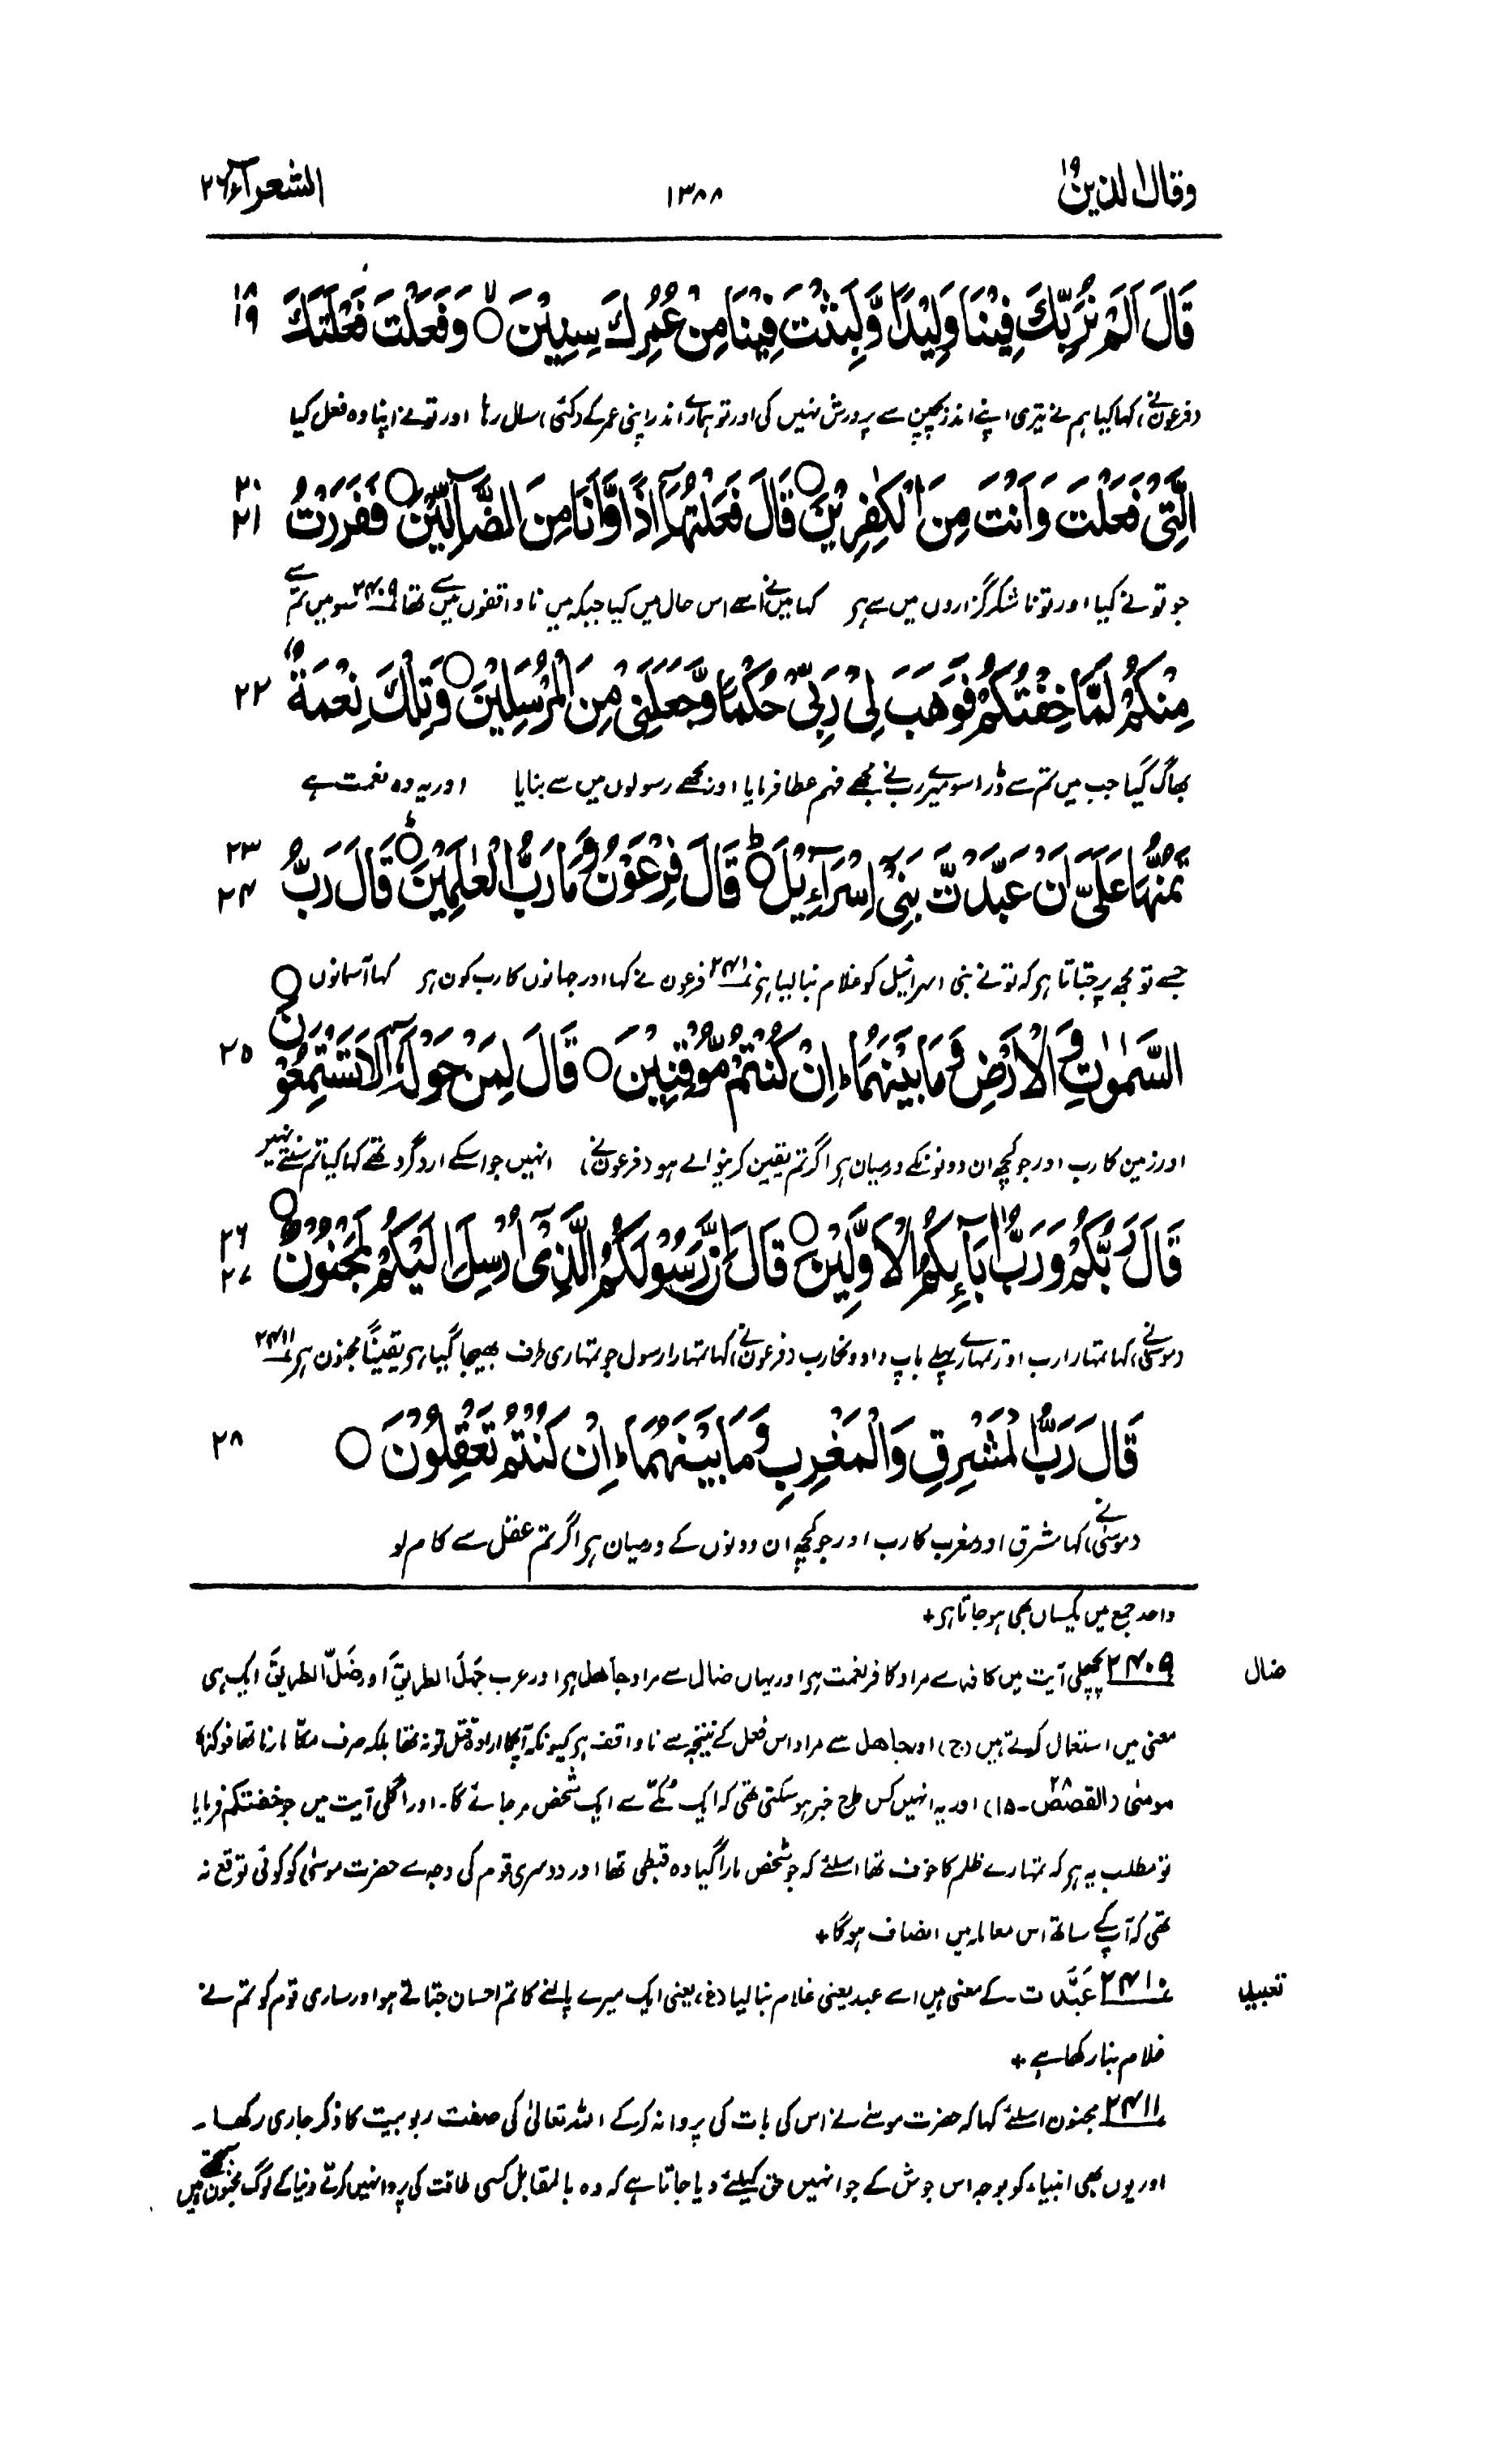 وقال الذین ۱۹
۱۳۸۸
الشعرآء ۲۶
قَالَ اَلَمْ نُرَبِّكَ فِيْنَا وَلِيْدًا وَّلَبِثْتَ فِيْنَا مِنْ عُمُرِكَ سِنِيْنَ ○ وَفَعَلْتَ فَعْلَتَكَ ۱۸ ۱۹
(فرعون نے) کہا کیا ہم نے تیری اپنے اندر بچپن سے پرورش نہیں کی اور تو ہمارے اندر اپنی عمر کے (کئی) سال رہا اور تو نے اپنا وہ فعل کیا
الَّتِيْ فَعَلْتَ وَاَنْتَ مِنَ الْكٰفِرِيْنَ ○ قَالَ فَعَلْتُهَآ اِذًا وَّاَنَا مِنَ الضَّآلِّيْنَ ○ فَفَرَرْتُ ۲۰ ۲۱
جو تو نے کیا اور تو ناشکر گزاروں میں سے ہر کہا میں نے اسے اس حال میں کیا جبکہ میں ناواقفوں میں سے تھا ۲۴۰۹ سو میں تم سے
مِنْكُمْ لَمَّا خِفْتُكُمْ فَوَهَبَ لِيْ رَبِّيْ حُكْمًا وَّجَعَلَنِيْ مِنَ الْمُرْسَلِيْنَ ○ وَتِلْكَ نِعْمَةٌ ۲۲
بھاگ گیا جب میں تم سے ڈرا سو میرے رب نے مجھے فہم عطا فرمایا اور مجھے رسولوں میں سے بنایا اور یہ وہ نعمت ہے
تَمُنُّهَا عَلَيَّ اَنْ عَبَّدْتَّ بَنِيْٓ اِسْرَآءِيْلَ ○ قَالَ فِرْعَوْنُ وَمَا رَبُّ الْعٰلَمِيْنَ ○ قَالَ رَبُّ ۲۳ ۲۴
جسے تو مجھ پر جتاتا ہر کہ تو نے بنی اسرائیل کو غلام بنا لیا ہر ۲۴۱۰ فرعون نے کہا اور جہانوں کا رب کون ہر کہا آسمانوں
السَّمٰوٰتِ وَالْاَرْضِ وَمَا بَيْنَهُمَا ؕ اِنْ كُنْتُمْ مُّوْقِنِيْنَ ○ قَالَ لِمَنْ حَوْلَهٗٓ اَلَا تَسْتَمِعُوْنَ ○ ۲۵
اور زمین کا رب اور جو کچھ ان دونوں کے درمیان ہر اگر تم یقین کرنیوالے ہو (فرعون نے) انہیں جو اسکے اردگرد تھے کہا کیا تم سنتے نہیں
قَالَ رَبُّكُمْ وَرَبُّ اٰبَآئِكُمُ الْاَوَّلِيْنَ ○ قَالَ اِنَّ رَسُوْلَكُمُ الَّذِيْٓ اُرْسِلَ اِلَيْكُمْ لَمَجْنُوْنٌ ○ ۲۶ ۲۷
(موسیٰ نے) کہا تمہارا رب اور تمہارے پہلے باپ دادونکا رب (فرعون نے) کہا تمہارا رسول جو تمہاری طرف بھیجا گیا ہر یقیناً مجنون ہر ۲۴۱۱
قَالَ رَبُّ الْمَشْرِقِ وَالْمَغْرِبِ وَمَا بَيْنَهُمَا ؕ اِنْ كُنْتُمْ تَعْقِلُوْنَ ○ ۲۸
(موسیٰ نے) کہا مشرق اور مغرب کا رب اور جو کچھ ان دونوں کے درمیان ہر اگر تم عقل سے کام لو
واحد جمع میں یکساں بھی ہو جاتا ہر +
ضال ۲۴۰۹ پچھلی آیت میں کافر سے مراد کافر نعمت ہر اور یہاں ضال سے مراد جاھل ہر اور عرب جَہِلَ الطریقَ اور ضَلَّ الطریقَ ایک ہی
معنی میں استعمال کرتے ہیں (ج) اور جاھل سے مراد اس فعل کے نتیجہ سے ناواقف ہر کیونکہ آپکا ارادہ قتل تو نہ تھا بلکہ صرف مکّا مارنا تھا فوکزہ
موسیٰ (القصص ۲۸-۱۵) اور یہ انہیں کس طرح خبر ہو سکتی تھی کہ ایک مُکّے سے ایک شخص مر جائے گا۔ اور اگلی آیت میں جو خفتکم فرمایا
تو مطلب یہ ہر کہ تمہارے ظلم کا خوف تھا اسلئے کہ جو شخص مارا گیا وہ قبطی تھا اور دوسری قوم کی وجہ سے حضرت موسیٰ کو کوئی توقع نہ
تھی کہ آپ کے ساتھ اس معاملہ میں انصاف ہوگا +
تعبید ۲۴۱۰ عَبَّدْت۔ کے معنی ہیں اسے عبد یعنی غلام بنا لیا (غ) یعنی ایک میرے پالنے کا تم احسان جتاتے ہو اور ساری قوم کو تم نے
غلام بنا رکھا ہے +
۲۴۱۱ مجنون اسلئے کہا کہ حضرت موسیٰ نے اس کی بات کی پروا نہ کر کے اللہ تعالیٰ کی صفت ربوبیت کا ذکر جاری رکھا۔
اور یوں بھی انبیاء کو بوجہ اس جوش کے جو انہیں حق کیلئے دیا جاتا ہے کہ وہ بالمقابل کسی طاقت کی پروا نہیں کرتے دنیا کے لوگ مجنون سمجھتے ہیں